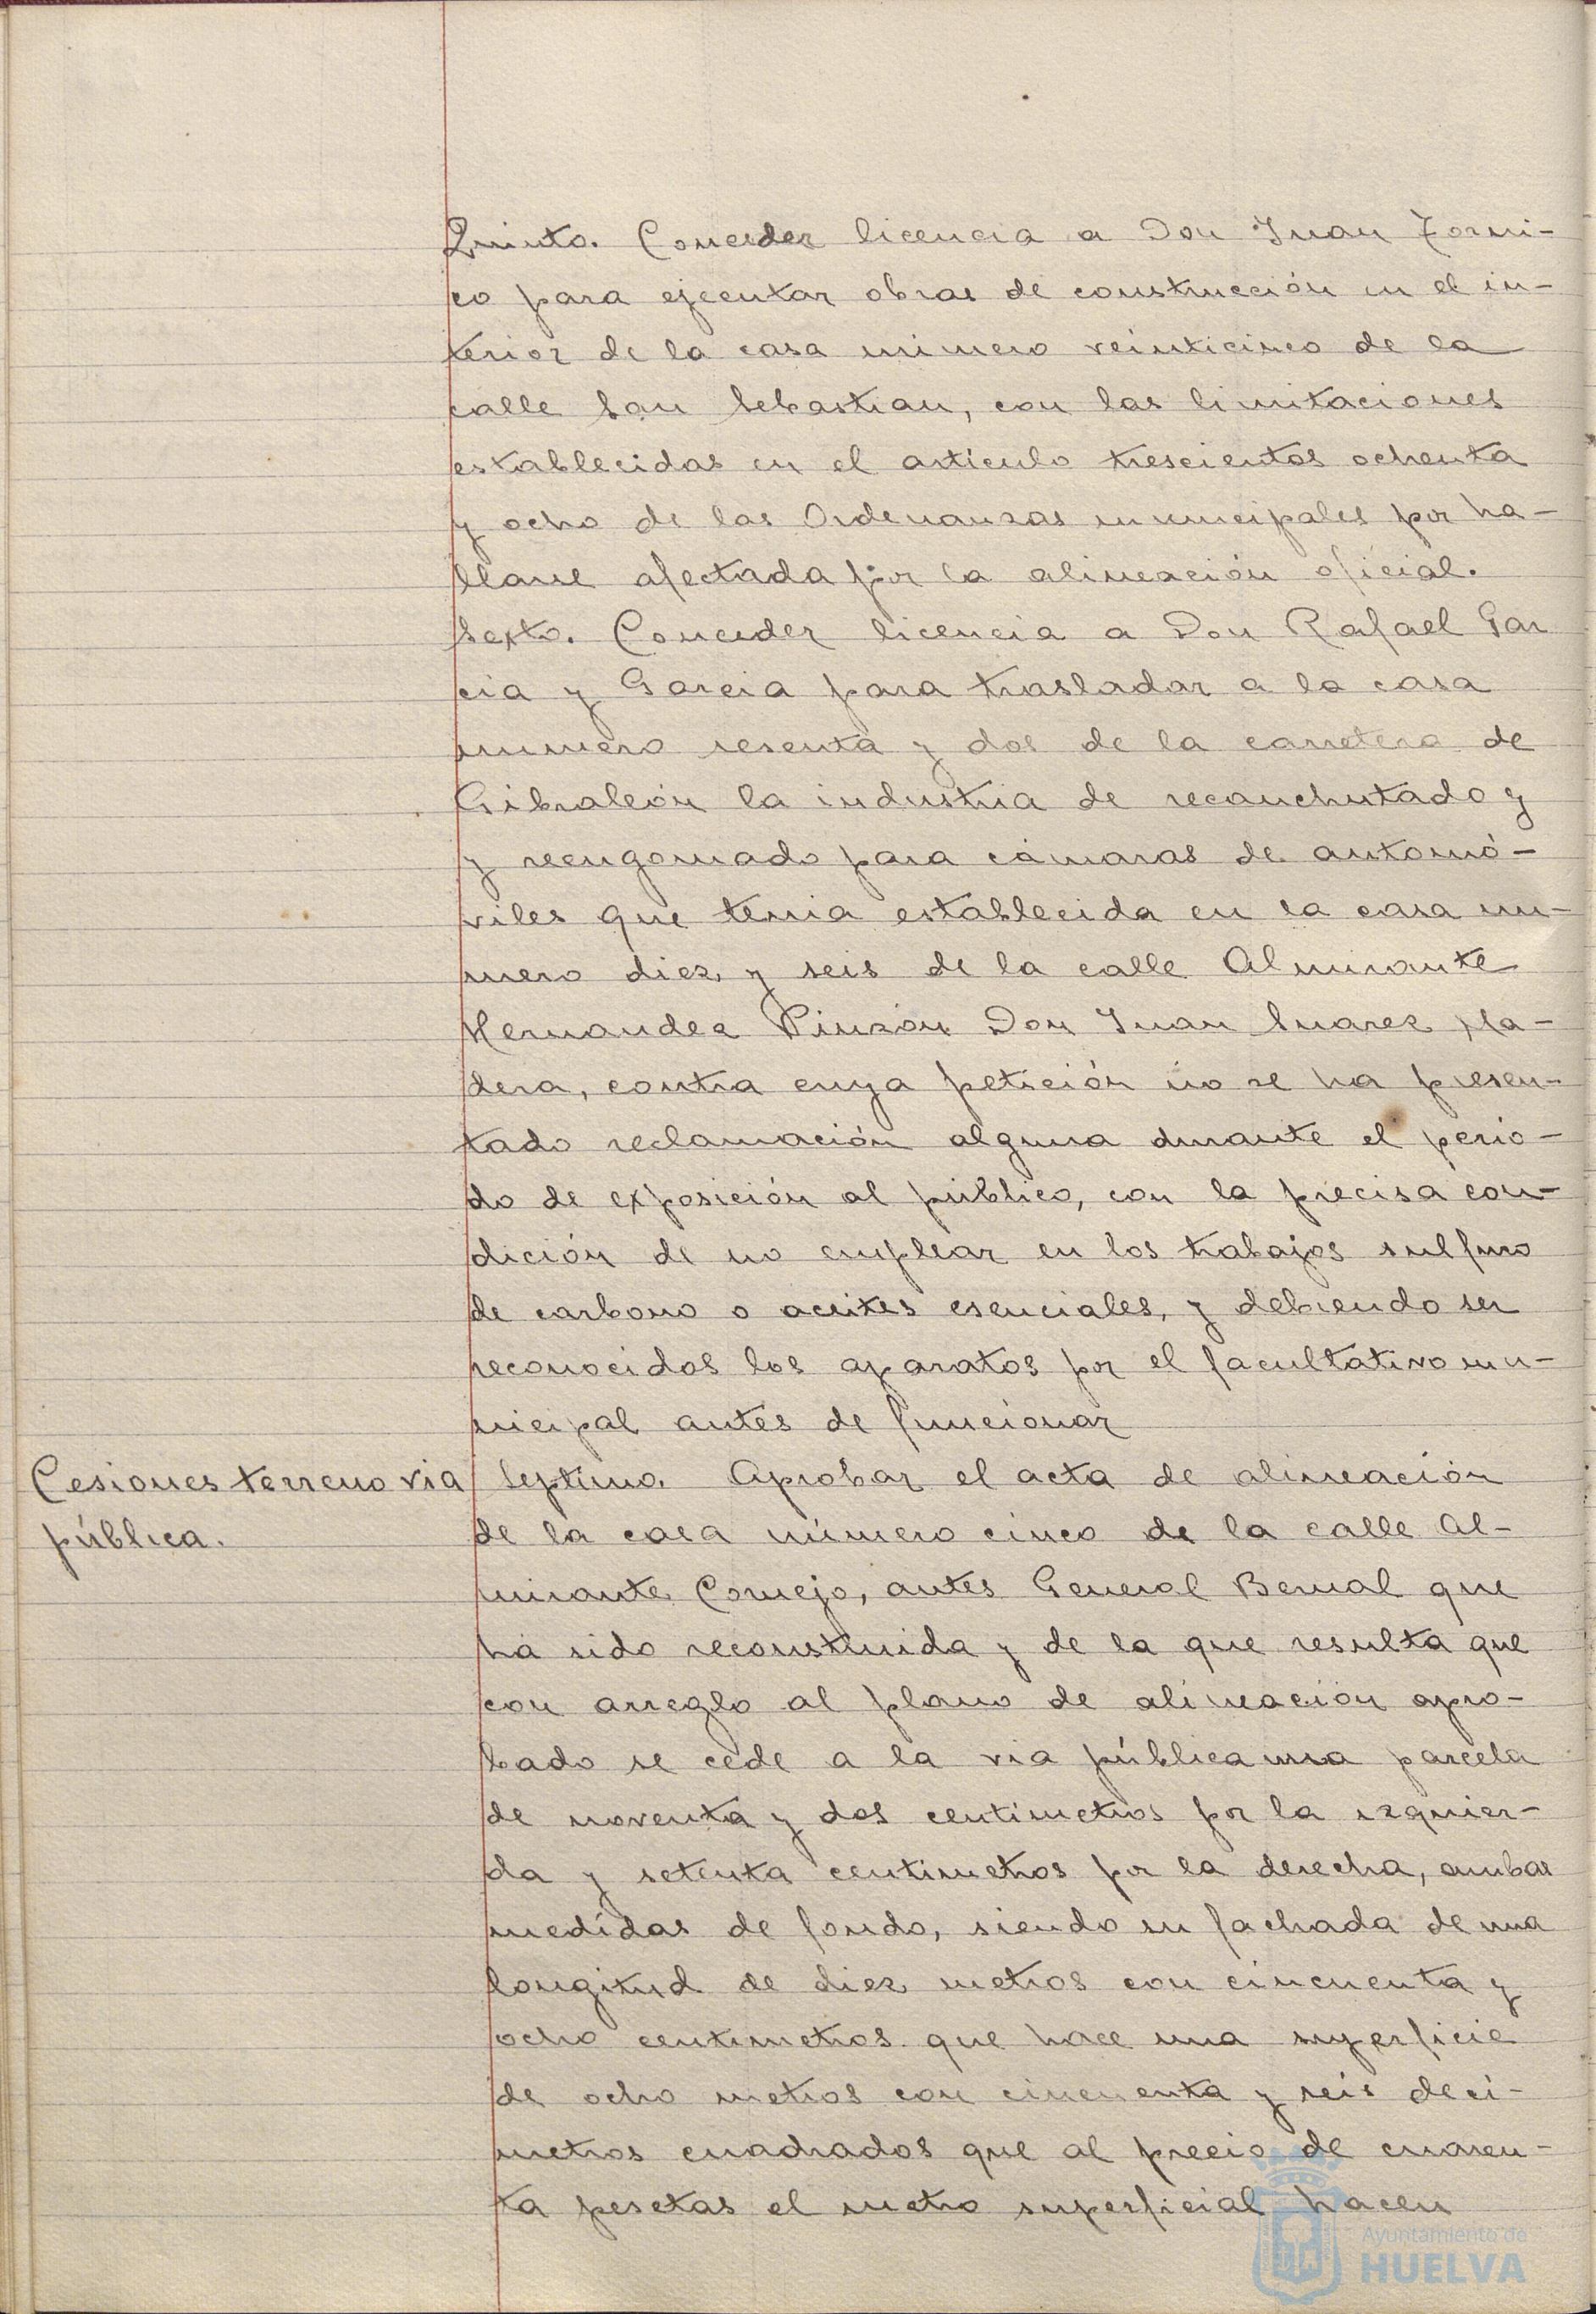 Quinto. Conceder licencia a Don Juan Torni-
co para ejecutar obras de construcción en el in-
terior de la casa número veinticinco de la
calle San Sebastian, con las limitaciones
establecidas en el artículo trescientos ochenta
y ocho de las Ordenanzas municipales por ha-
llarse afectada por la alineación oficial.
Sexto. Conceder licencia a Don Rafael Gar
cia y Garcia para trasladar a la casa
numero sesenta y dos de la carretera de
Gibraleón la industria de recauchutado y
y reengomado para cámaras de automó-
viles que tenia establecida en la casa nu-
mero diez y seis de la calle Almirante
Hernandez Pinzón Don Juan Suarez
dera, contra cuya petición no se ha presen-
tado reclamación alguna durante el perio-
do de exposición al público, con la precisa con-
dición de no emplear en los trabajos sulfuro
de carbono o aceites esenciales, y debiendo ser
reconocidos los aparatos por el facultativo mu-
nicipal antes de funcionar
Cesiones terreno via
pública.
Septimo. Aprobar el acta de alineación
de la casa número cinco de la calle Al-
mirante Cornejo, antes General Bernal que
ha sido reconstruida y de la que resulta que
con arreglo al plano de alineación apro-
bado se cede a la via pública una parcela
de noventa y dos centímetros por la izquier-
da y setenta centimetros por la derecha, ambas
medidas de fondo, siendo su fachada de una
longitud de diez metros con cincuenta y
ocho centimetros que hace una superficie
de ocho metros con cincuenta y seis deci-
metros cuadrados que al precio de cuaren-
ta pesetas el metro superficial hacen
Ayuntamiento de
HUELVA